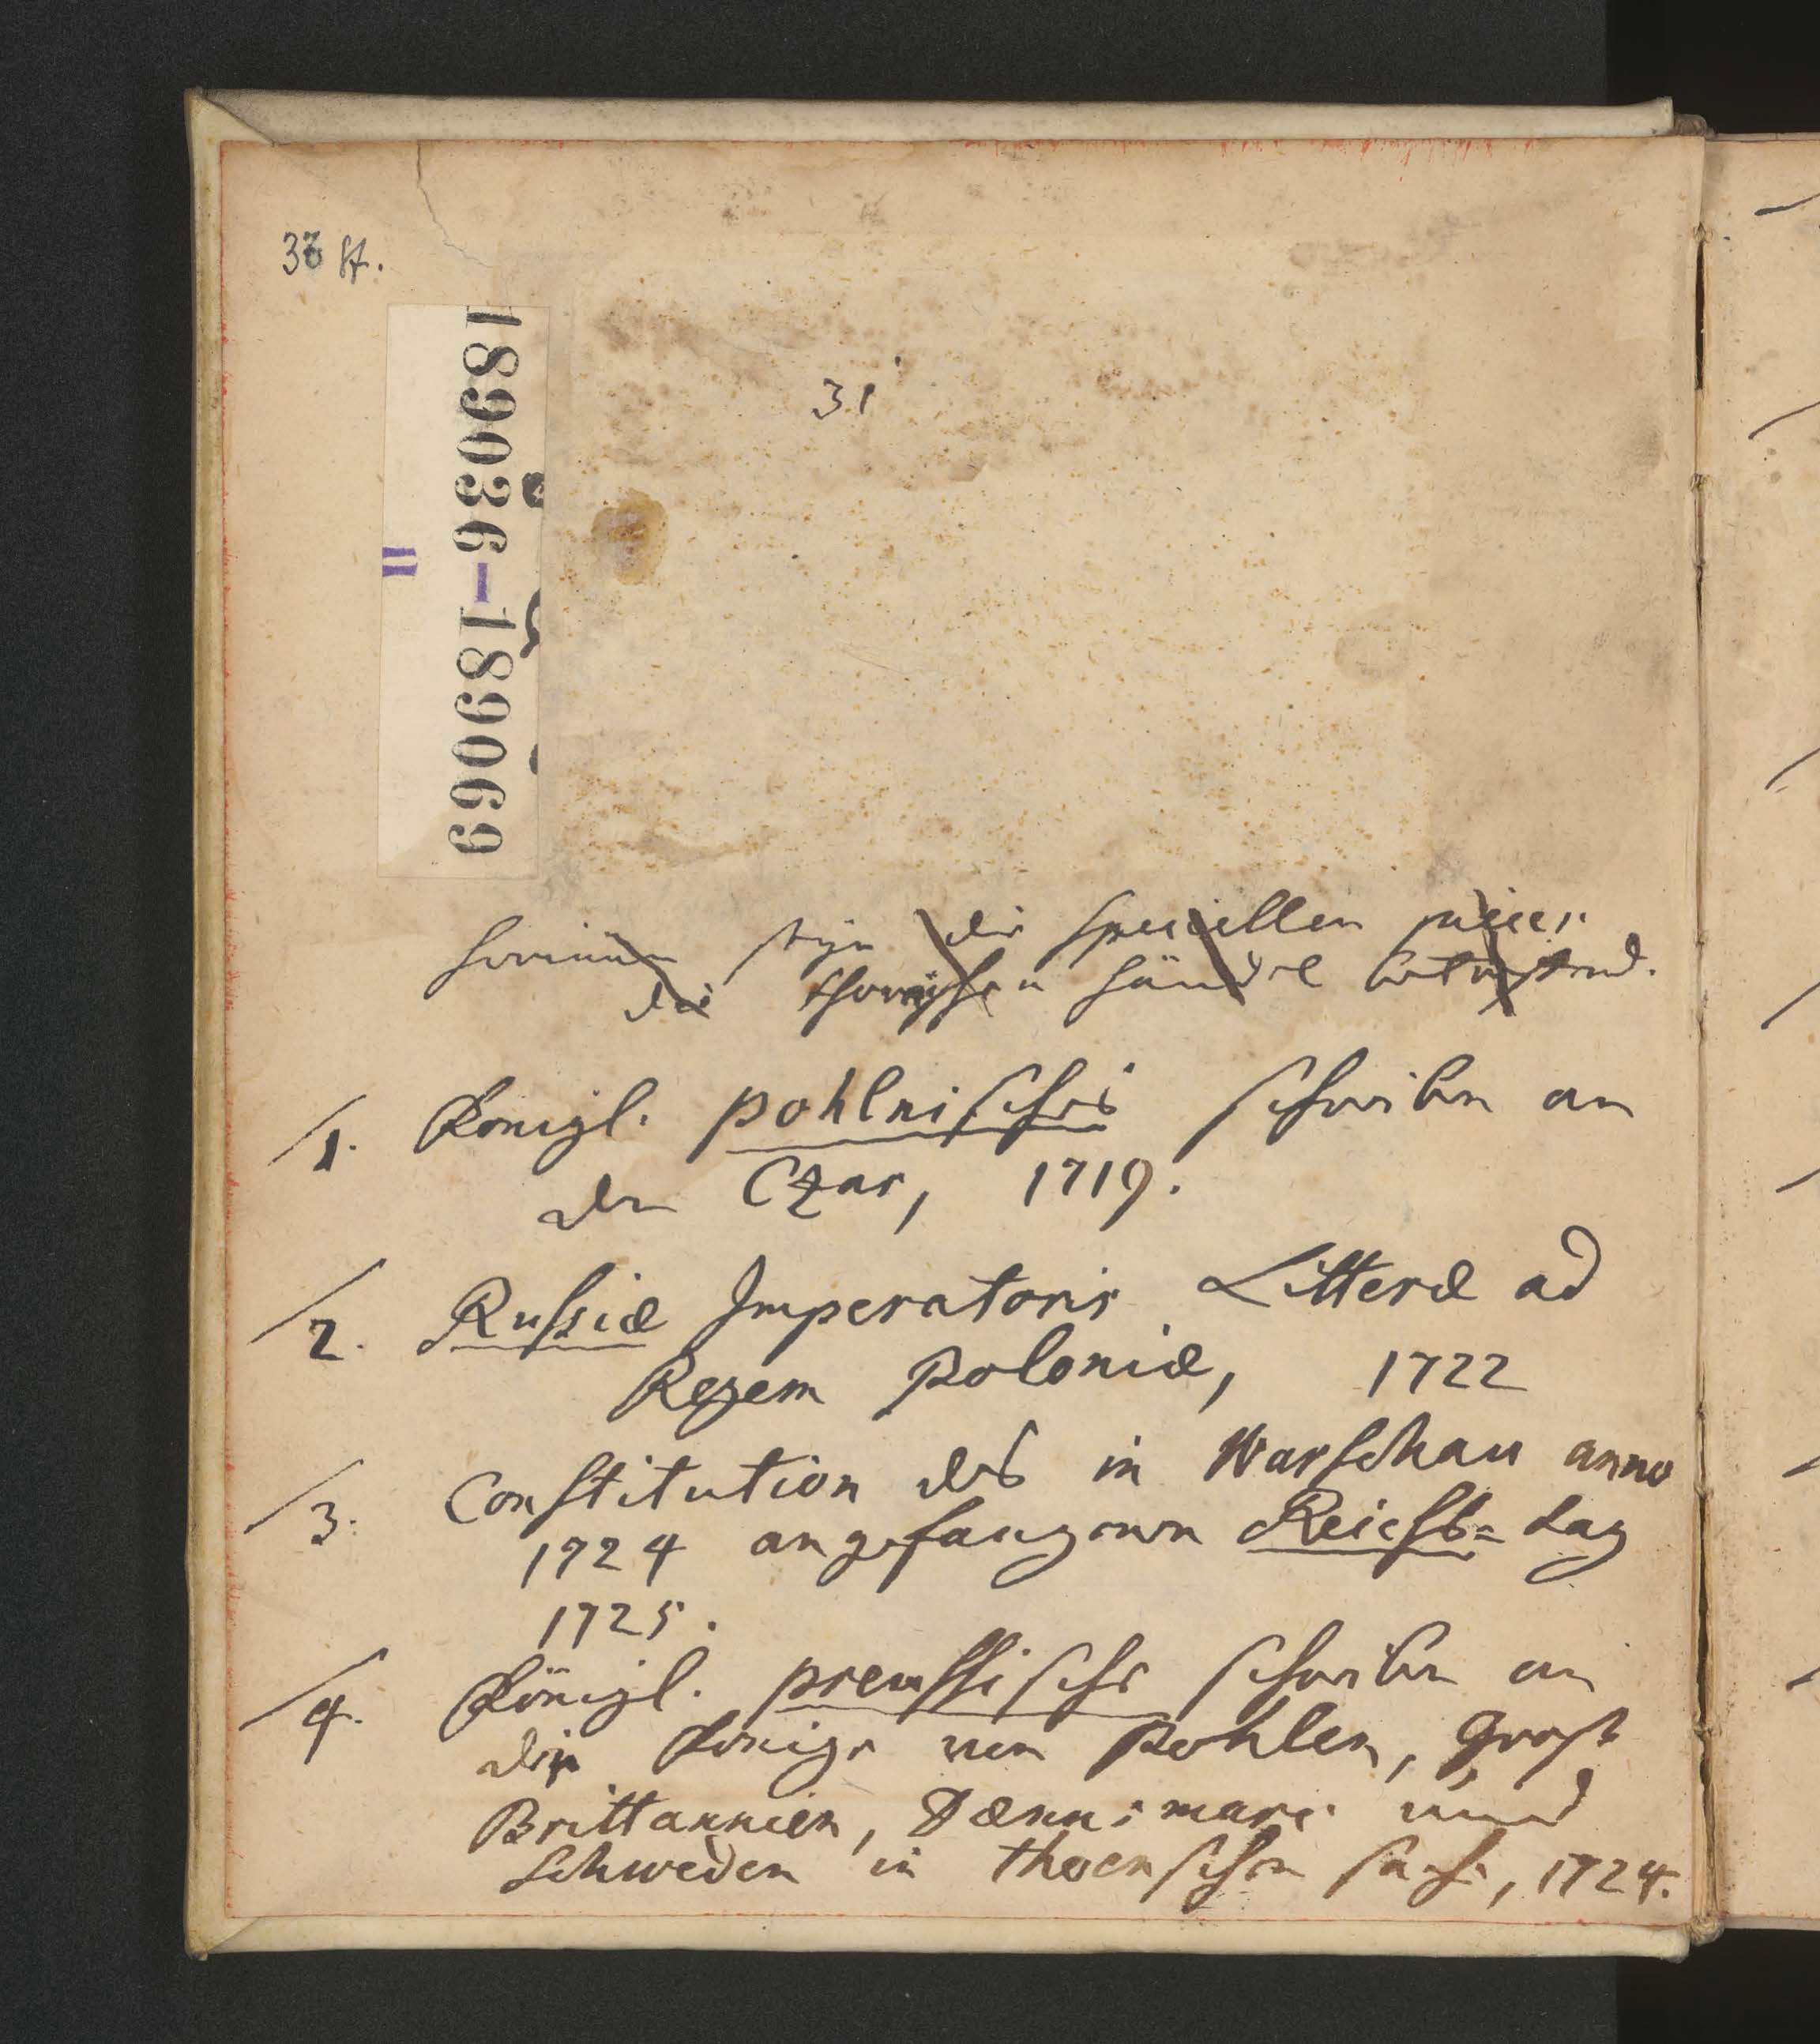 33 St.
189036-189069
II
31
hierinnen seyn die speciellen
die Thornischen Händel betreffend.
1. Königl. pohlnisches schreiben an
den Czar, 1719.
2. Russiæ Imperatoris Litteræ ad
Regem Poloniæ, 1722
3. Constitution des in Warschau anno
1724 angefangenen Reichs= Tag
1725.
4. Königl. preussische schreiben an
die Könige von Pohlen, Groß
Brittannien, Dænnemarc und
Schweden in thornschen sache, 1724.